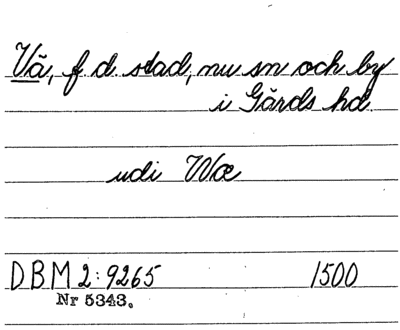 Vä, f. d. stad, nu sn och by
i Gärds hd.
udi Wæ
DBM 2:9265 1500
Nr 5343.